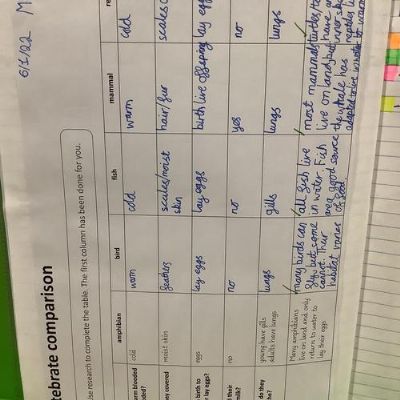 6/1/22 M
tebrate comparison
se research to complete the table. The first column has been done for you.
amphibian bird fish mammal re
arm blooded cold warm cold warm cold
moist skin feathers scales/moist skin hair/fur scales
birth to
lay eggs? eggs lay eggs lay eggs birth live offspring lay eggs
their
milk? no no no yes no
do they
young have gills
adults have lungs lungs gills lungs lungs
Many amphibians
live on land and only
return to water to
lay their eggs
many birds can
fly, but some
cannot. Their
habitat varies
all fish live
in water. Fish
are a good source
of food.
most mammals
live on land, but
the whale has
adapted to live in water